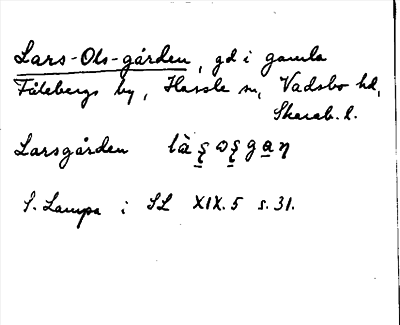 Lars-Ols-gården, gd i gamla
Fålebergs by, Hassle sn, Vadsbo hd,
Skarab. l.
Larsgården
S. Lampa i SL XIX. 5 s. 31.